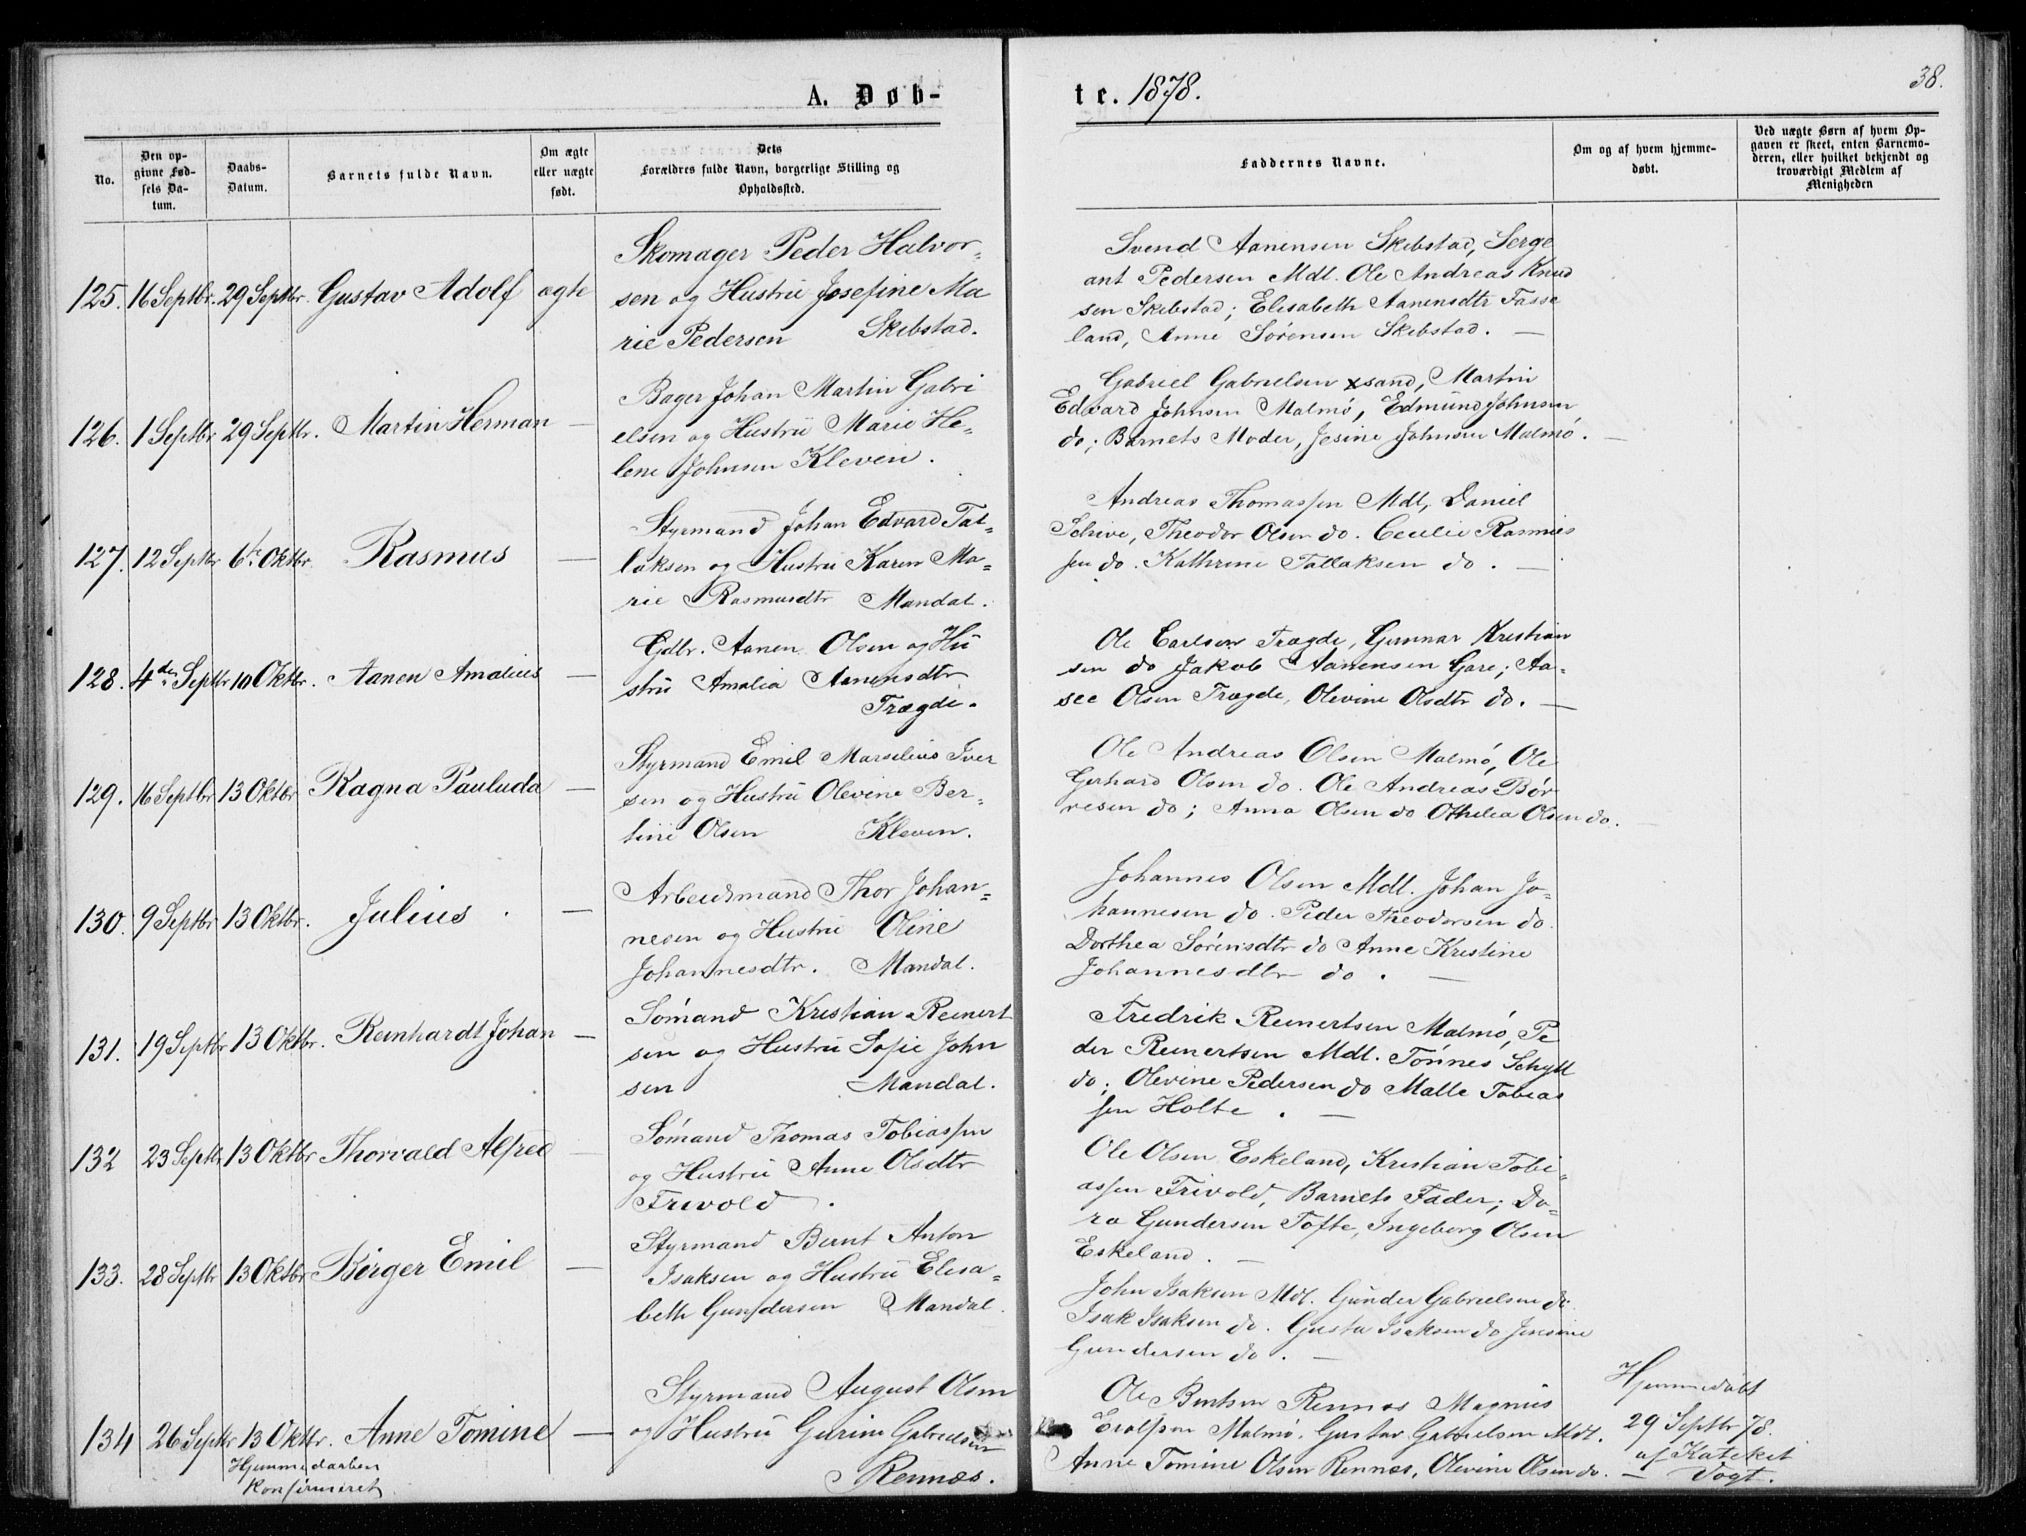 A. Døb-
te. 1878.
38.
No.
Den op-
givne Fød-
sels Da-
tum.
Daabs-
Datum.
Barnets fulde Navn.
Om ægte
eller uægte
født.
Dets
Forældres fulde Navn, borgerlige Stilling og
Opholdssted.
Faddernes Navne.
Om og af hvem hjemme-
døbt.
Ved uægte Børn af hvem Op-
gaven er skeet, enten Barnemo-
deren, eller hvilket bekjendt og
troværdigt Medlem af
Menigheden
125. 16 Septbr. 29 Septbr. Gustav Adolf ægte
Skomager Peder Halvor-
sen og Hustru Josefine Ma
rie Pedersen Skibstad.
Svend Aanensen Skibstad, Serge
ant Pedersen Mdl. Ole Andreas Knud
sen Skibstad; Elisabeth Aanensdtr Fasse
land, Anne Sørensen Skibstad. —
126. 1 Septbr 29 Septbr. Martin Herman —
Bager Johan Martin Gabri
elsen og Hustru Marie He-
lene Johnsen Kleven.
Gabriel Gabrielsen xsand, Martin
Edvard Johnsen Malmø, Edmund Johnsen
do; Barnets Moder, Jesine Johnsen Malmø. —
127. 12 Septbr 6te Oktbr. Rasmus —
Styrmand Johan Edvard Tal-
laksen og Hustru Karen Ma-
rie Rasmusdtr Mandal.
Andreas Thomassen Mdl, Daniel
Schive, Theodor Olsen do. Cecilie Rasmus
sen do. Kathrine Tallaksen do. —
128. 4de Septbr 10 Oktbr. Aanen Amalius —
Gdbr. Aanen Olsen og Hu
stru Amalia Aanensdtr
Trægde.
Ole Carlsen Trægde, Gunnar Kristian
sen do Jakob Aanensen Gare; Aa-
see Olsen Trægde, Olevine Olsdtr do. —
129. 16 Septbr 13 Oktbr Ragna Pauluda —
Styrmand Emil Marselius Iver
sen og Hustru Olevine Ber-
tine Olsen Kleven.
Ole Andreas Olsen Malmø, Ole
Gerhard Olsen do. Ole Andreas Bør
resen do; Anna Olsen do Othelia Olsen do. —
130. 9 Septbr 13 Oktbr. Julius —
Arbeidsmand Thor Johan-
nesen og Hustru Oline
Johannesdtr. Mandal.
Johannes Olsen Mdl. Johan Jo-
hannesen do. Peder Theodorsen do
Dorthea Sørensdtr do Anne Kristine
Johannesdtr do. —
131. 19 Septbr 13 Oktbr. Reinhardt Johan —
Sømand Kristian Reinert
sen og Hustru Sofie John
sen Mandal.
Fredrik Reinertsen Malmø, Pe
der Reinertsen Mdl. Tønnes Schytt
do; Olevine Pedersen do Malle Tobias
sen Holte. —
132 23 Septbr 13 Oktbr Thorvald Alfred —
Sømand Thomas Tobiassen
og Hustru Anne Olsdtr
Frivold.
Ole Olsen Eskeland, Kristian Tobi-
assen Frivold, Barnets Fader; Do-
ra Gundersen Tofte, Ingeborg Olsen
Eskeland. —
133. 28 Septbr 13 Oktbr Birger Emil —
Styrmand Bernt Anton
Isaksen og Hustru Elisa-
beth Gundersen Mandal.
John Isaksen Mdl. Gunder Gabrielsen do
Isak Isaksen do. Gusta Isaksen do Jensine
Gundersen do. —
134 26 Septbr 13 Oktbr. Anne Tomine —
Hjemmedaaben
konfirmeret
Styrmand August Olsen
og Hustru Gurine Gabrielsen
Rennes.
Ole Berntsen Rennes Magnus
Malmø. Gustav Gabrielsen Mdl.
Anne Tomine Olsen Rennes, Olevine Olsen do. —
Hjemmedøbt
29 Septbr 78.
af Kateket
Vogt.